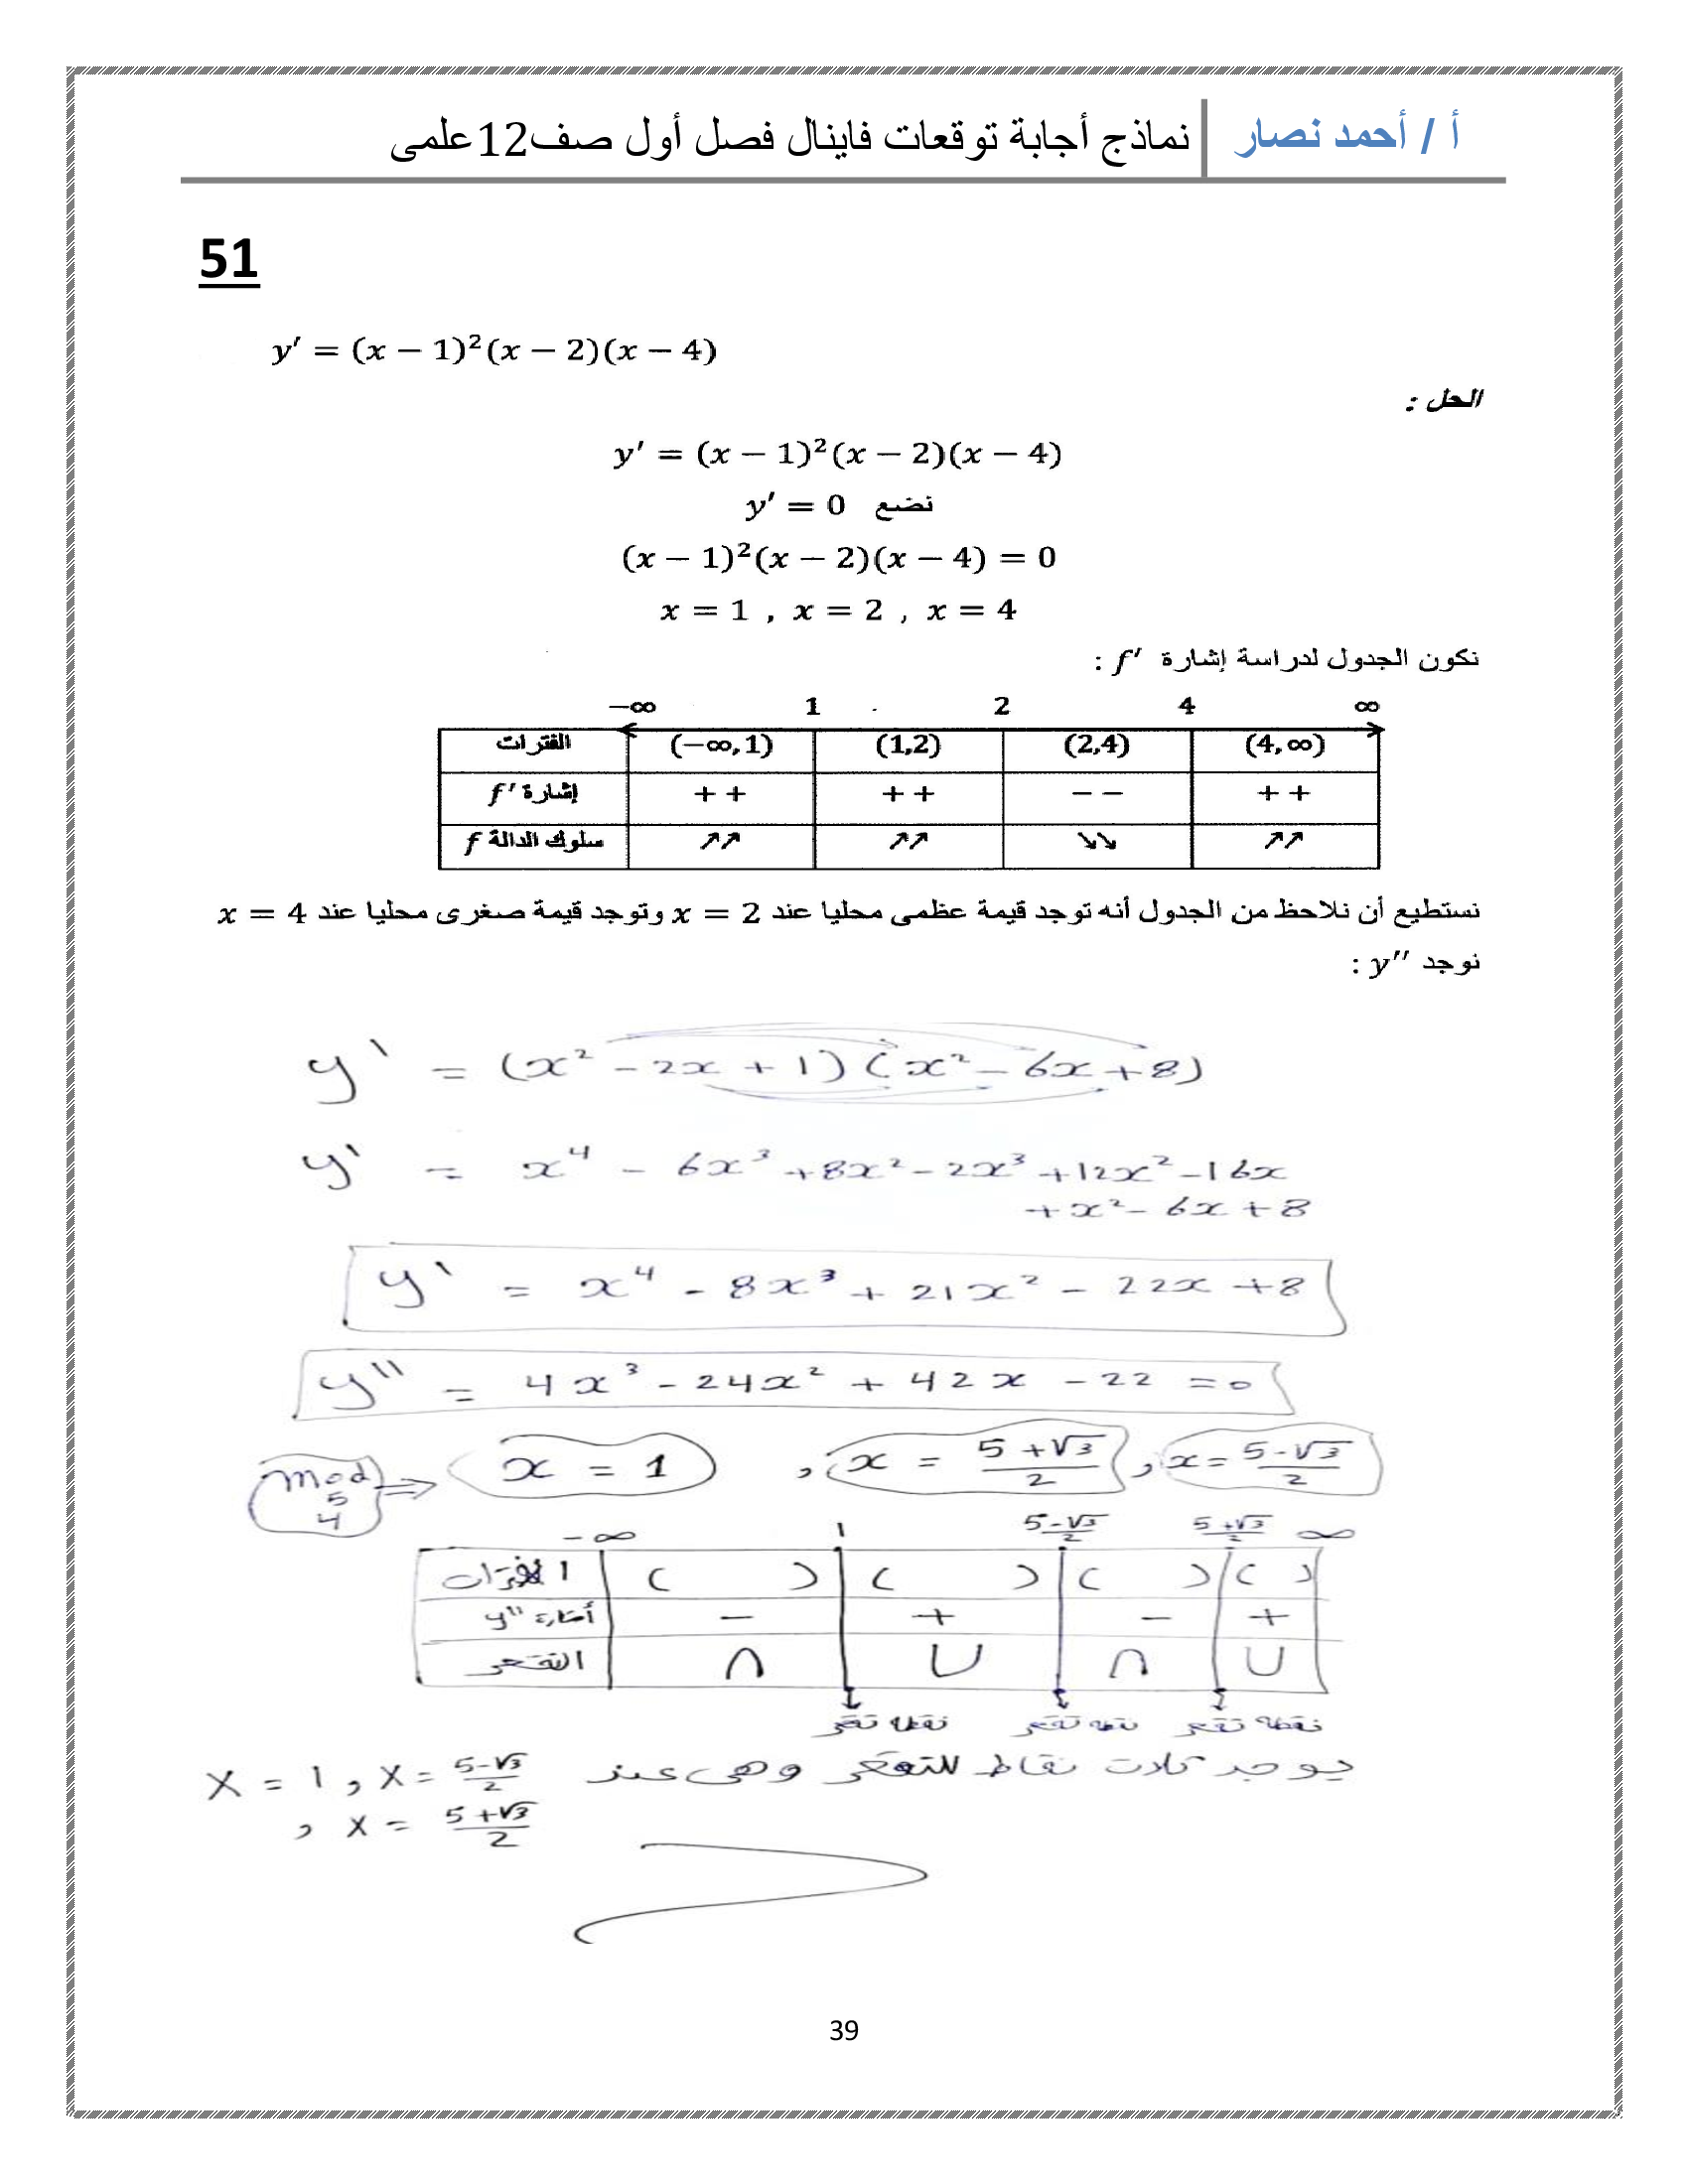 أ / أحمد نصار نماذج أجابة توقعات فاينال فصل أول صف12علمى
51
y′ = (x − 1)²(x − 2)(x − 4)
الحل :
y′ = (x − 1)²(x − 2)(x − 4)
نضع y′ = 0
(x − 1)²(x − 2)(x − 4) = 0
x = 1 , x = 2 , x = 4
نكون الجدول لدراسة إشارة f′ :
−∞ 1 2 4 ∞
الفترات (−∞,1) (1,2) (2,4) (4,∞)
إشارة f′ + + + + − − + +
سلوك الدالة f ↗↗ ↗↗ ↘↘ ↗↗
نستطيع أن نلاحظ من الجدول أنه توجد قيمة عظمى محليا عند x = 2 وتوجد قيمة صغرى محليا عند x = 4
نوجد y′′ :
y' = (x² − 2x + 1)(x² − 6x + 8)
y' = x⁴ − 6x³ + 8x² − 2x³ + 12x² − 16x
+ x² − 6x + 8
y' = x⁴ − 8x³ + 21x² − 22x + 8
y'' = 4x³ − 24x² + 42x − 22 = 0
mod 5 4 ⇒ x = 1 , x = (5+√3)/2 , x = (5−√3)/2
−∞ 1 (5−√3)/2 (5+√3)/2 ∞
الفترات ( ) ( ) ( ) ( )
أشارة y'' − + − +
التقعر ∩ ∪ ∩ ∪
نقطة تقعر نقطة تقعر نقطة تقعر
يوجد ثلاث نقاط للتقعر وهى عند x = 1 , x = (5−√3)/2
, x = (5+√3)/2
39